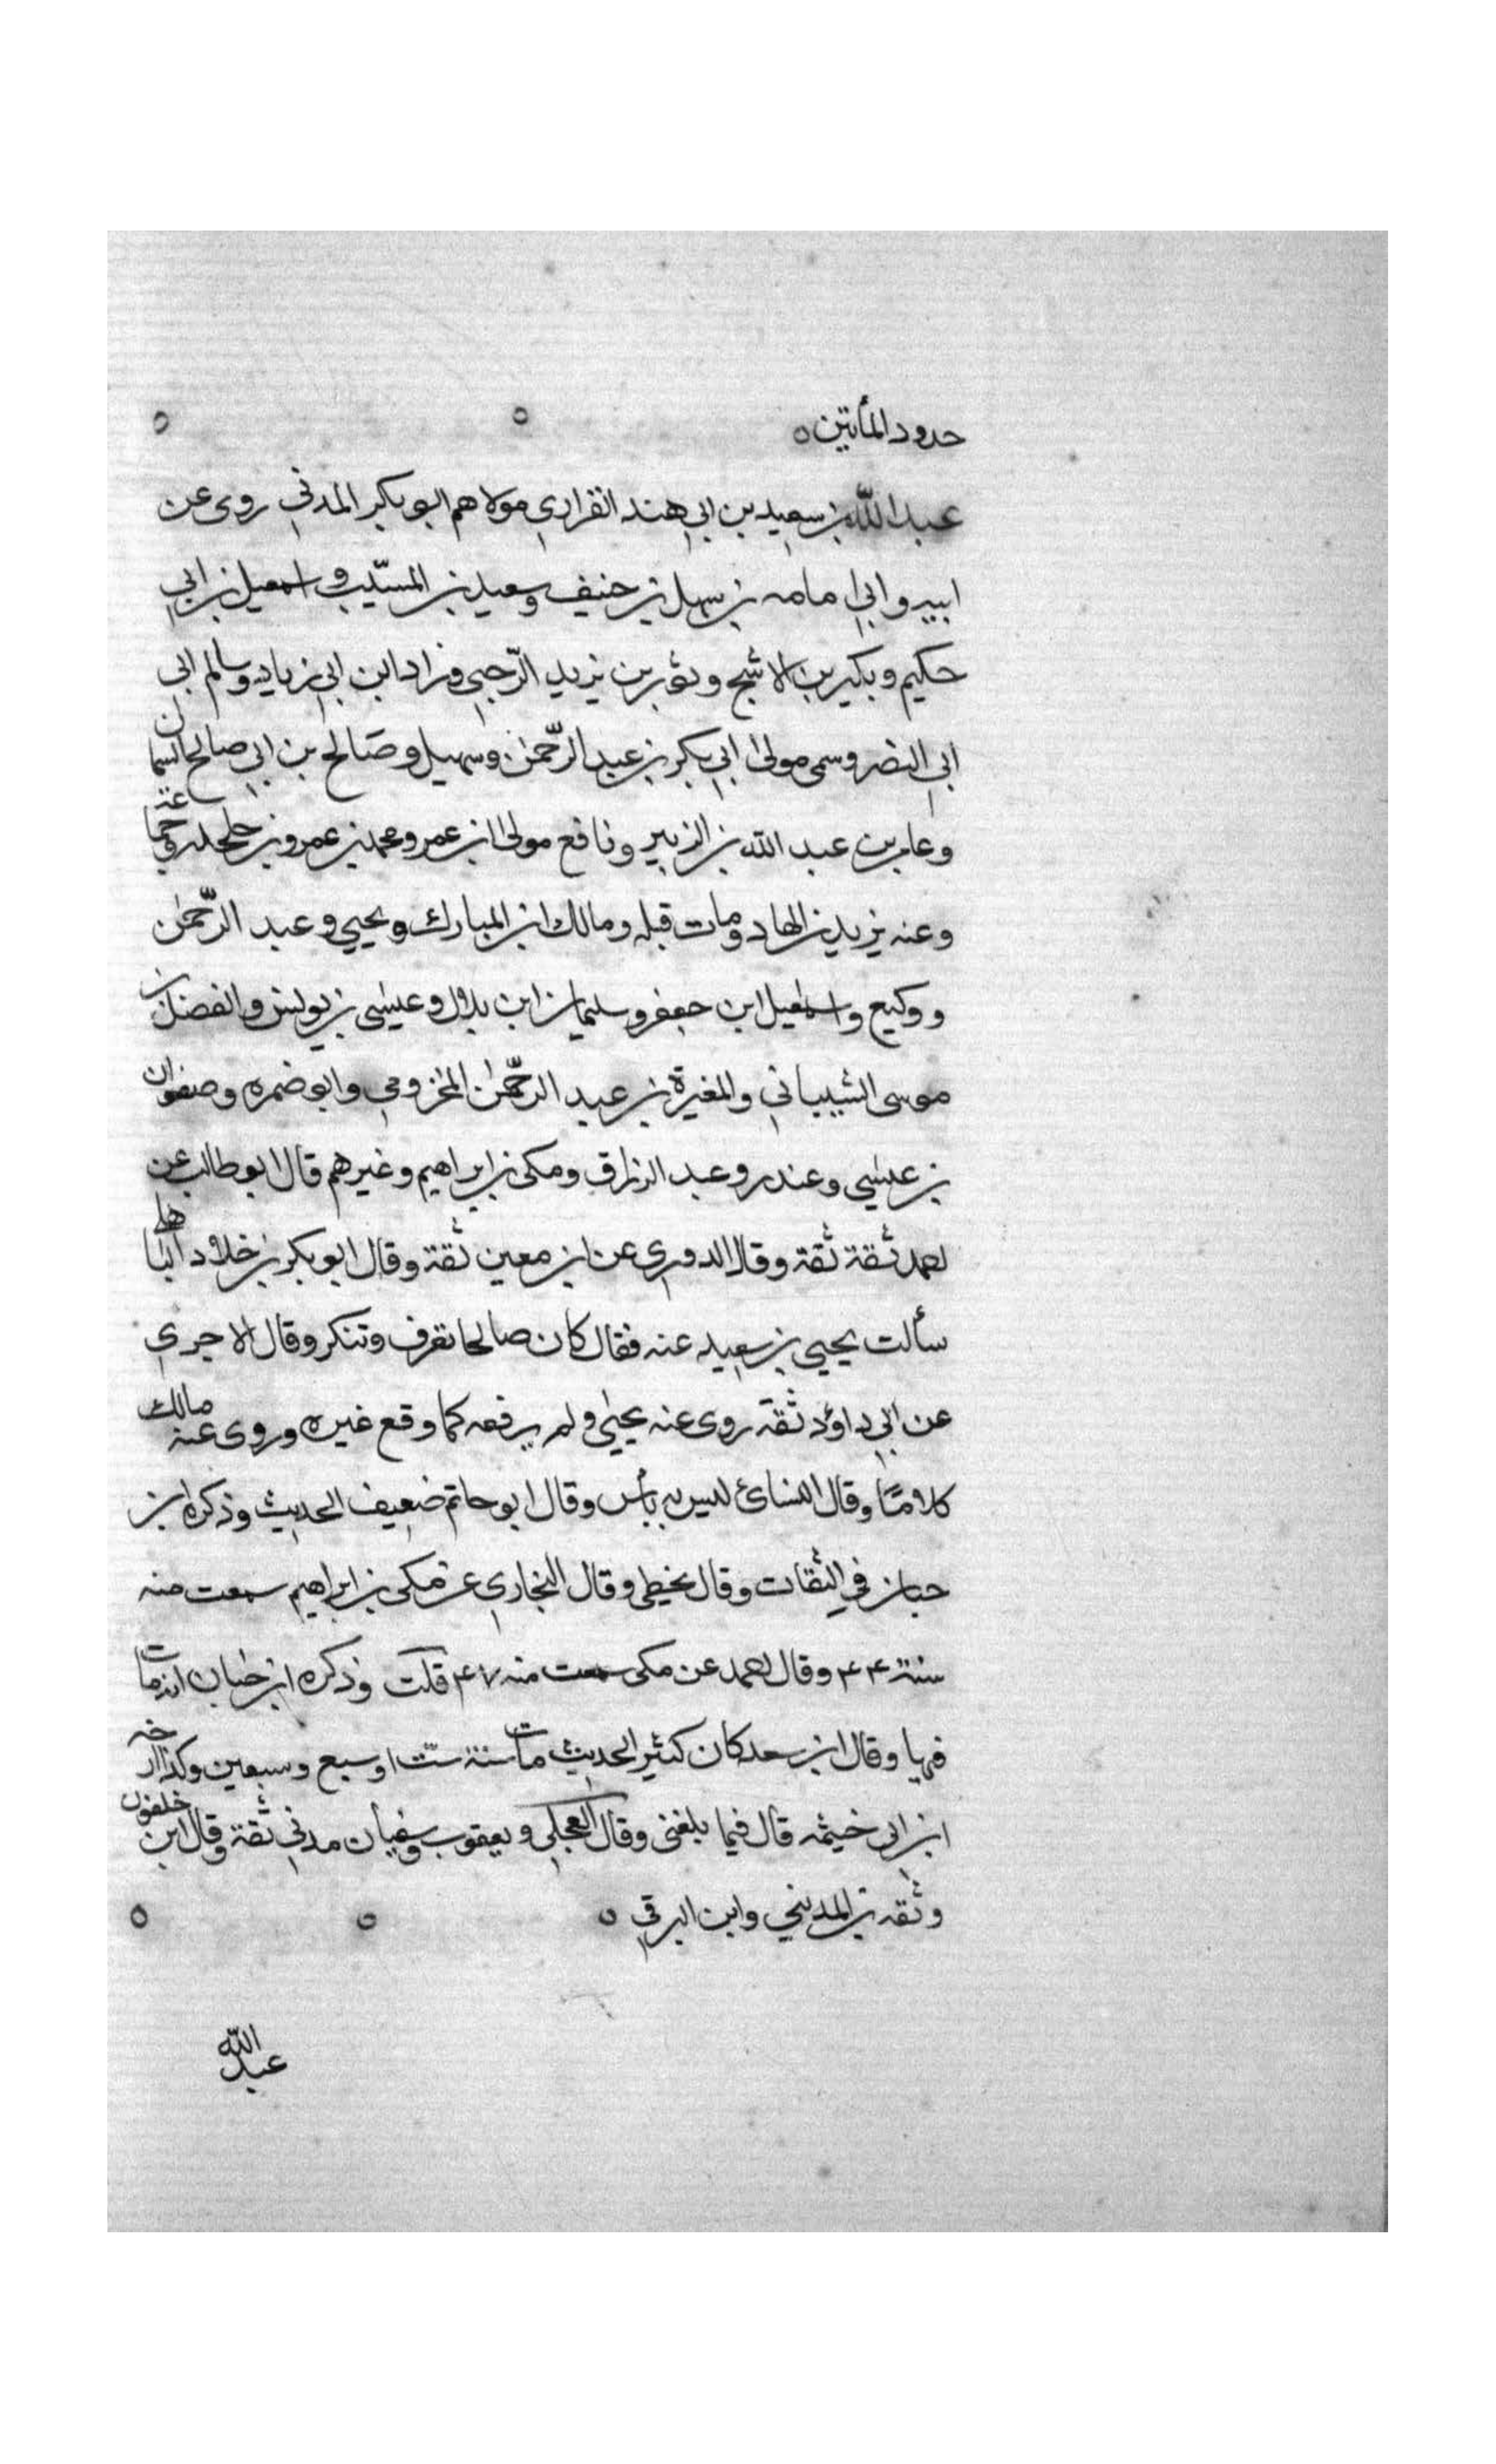 حدود المأتين ه ه ه
عبد الله بن سعيد بن ابي هند الفزاري مولاهم ابو بكر المدني روى عن
ابيه وابي امامه بن سهل بن حنيف وسعيد بن المسيّب واسمعيل بن ابي
حكيم وبكير بن الاشج وثور بن يزيد الرّحبي وزياد ابن ابي زياد وسالم ابي
ابي النضر وسمي مولى ابي بكر بن عبد الرّحمن وسهيل وصالح بن ابي صالح السمان
وعامر بن عبد الله بن الزبير ونافع مولى ابن عمر ومحمد بن عمرو بن حلحله وجماعة
وعنه يزيد بن الهاد ومات قبله ومالك ابن المبارك ويحيي وعبد الرّحمن
ووكيع واسمعيل ابن جعفر وسليمان ابن بلال وعيسى بن يونس والفضل بن
موسى الشيباني والمغيرة بن عبد الرّحمن المخزومي وابو ضمره وصفوان
بن عيسي وغندر وعبد الرزاق ومكي بن ابراهيم وغيرهم قال ابو طالب عن
احمد ثقة ثقة وقال الدوري عن ابن معين ثقة وقال ابو بكر بن خلاد الباهلي
سألت يحيي بن سعيد عنه فقال كان صالحا تعرف وتنكر وقال الاجري
عن ابي داؤد ثقة روى عنه يحيي ولم يرفعه كما وقع غيره وروى عنه مالك
كلامًا وقال النسائ ليس به بأس وقال ابو حاتم ضعيف الحديث وذكره ابن
حبان في الثقات وقال يخطي وقال البخاري عن مكي بن ابراهيم سمعت منه
سنة ۴۴ وقال احمد عن مكي سمعت منه ۴۷ قلت وذكره ابن حبان انه مات
فيها وقال ابن سعد كان كثير الحديث مات سنة ستّ او سبع وسبعين وكذا ارخه
ابن ابي خيثمه قال فيما بلغني وقال العجلي ويعقوب وسفيان مدني ثقة وقال ابن خلفون
وثقه بن المديني وابن البرقي ه ه ه
عبد الله